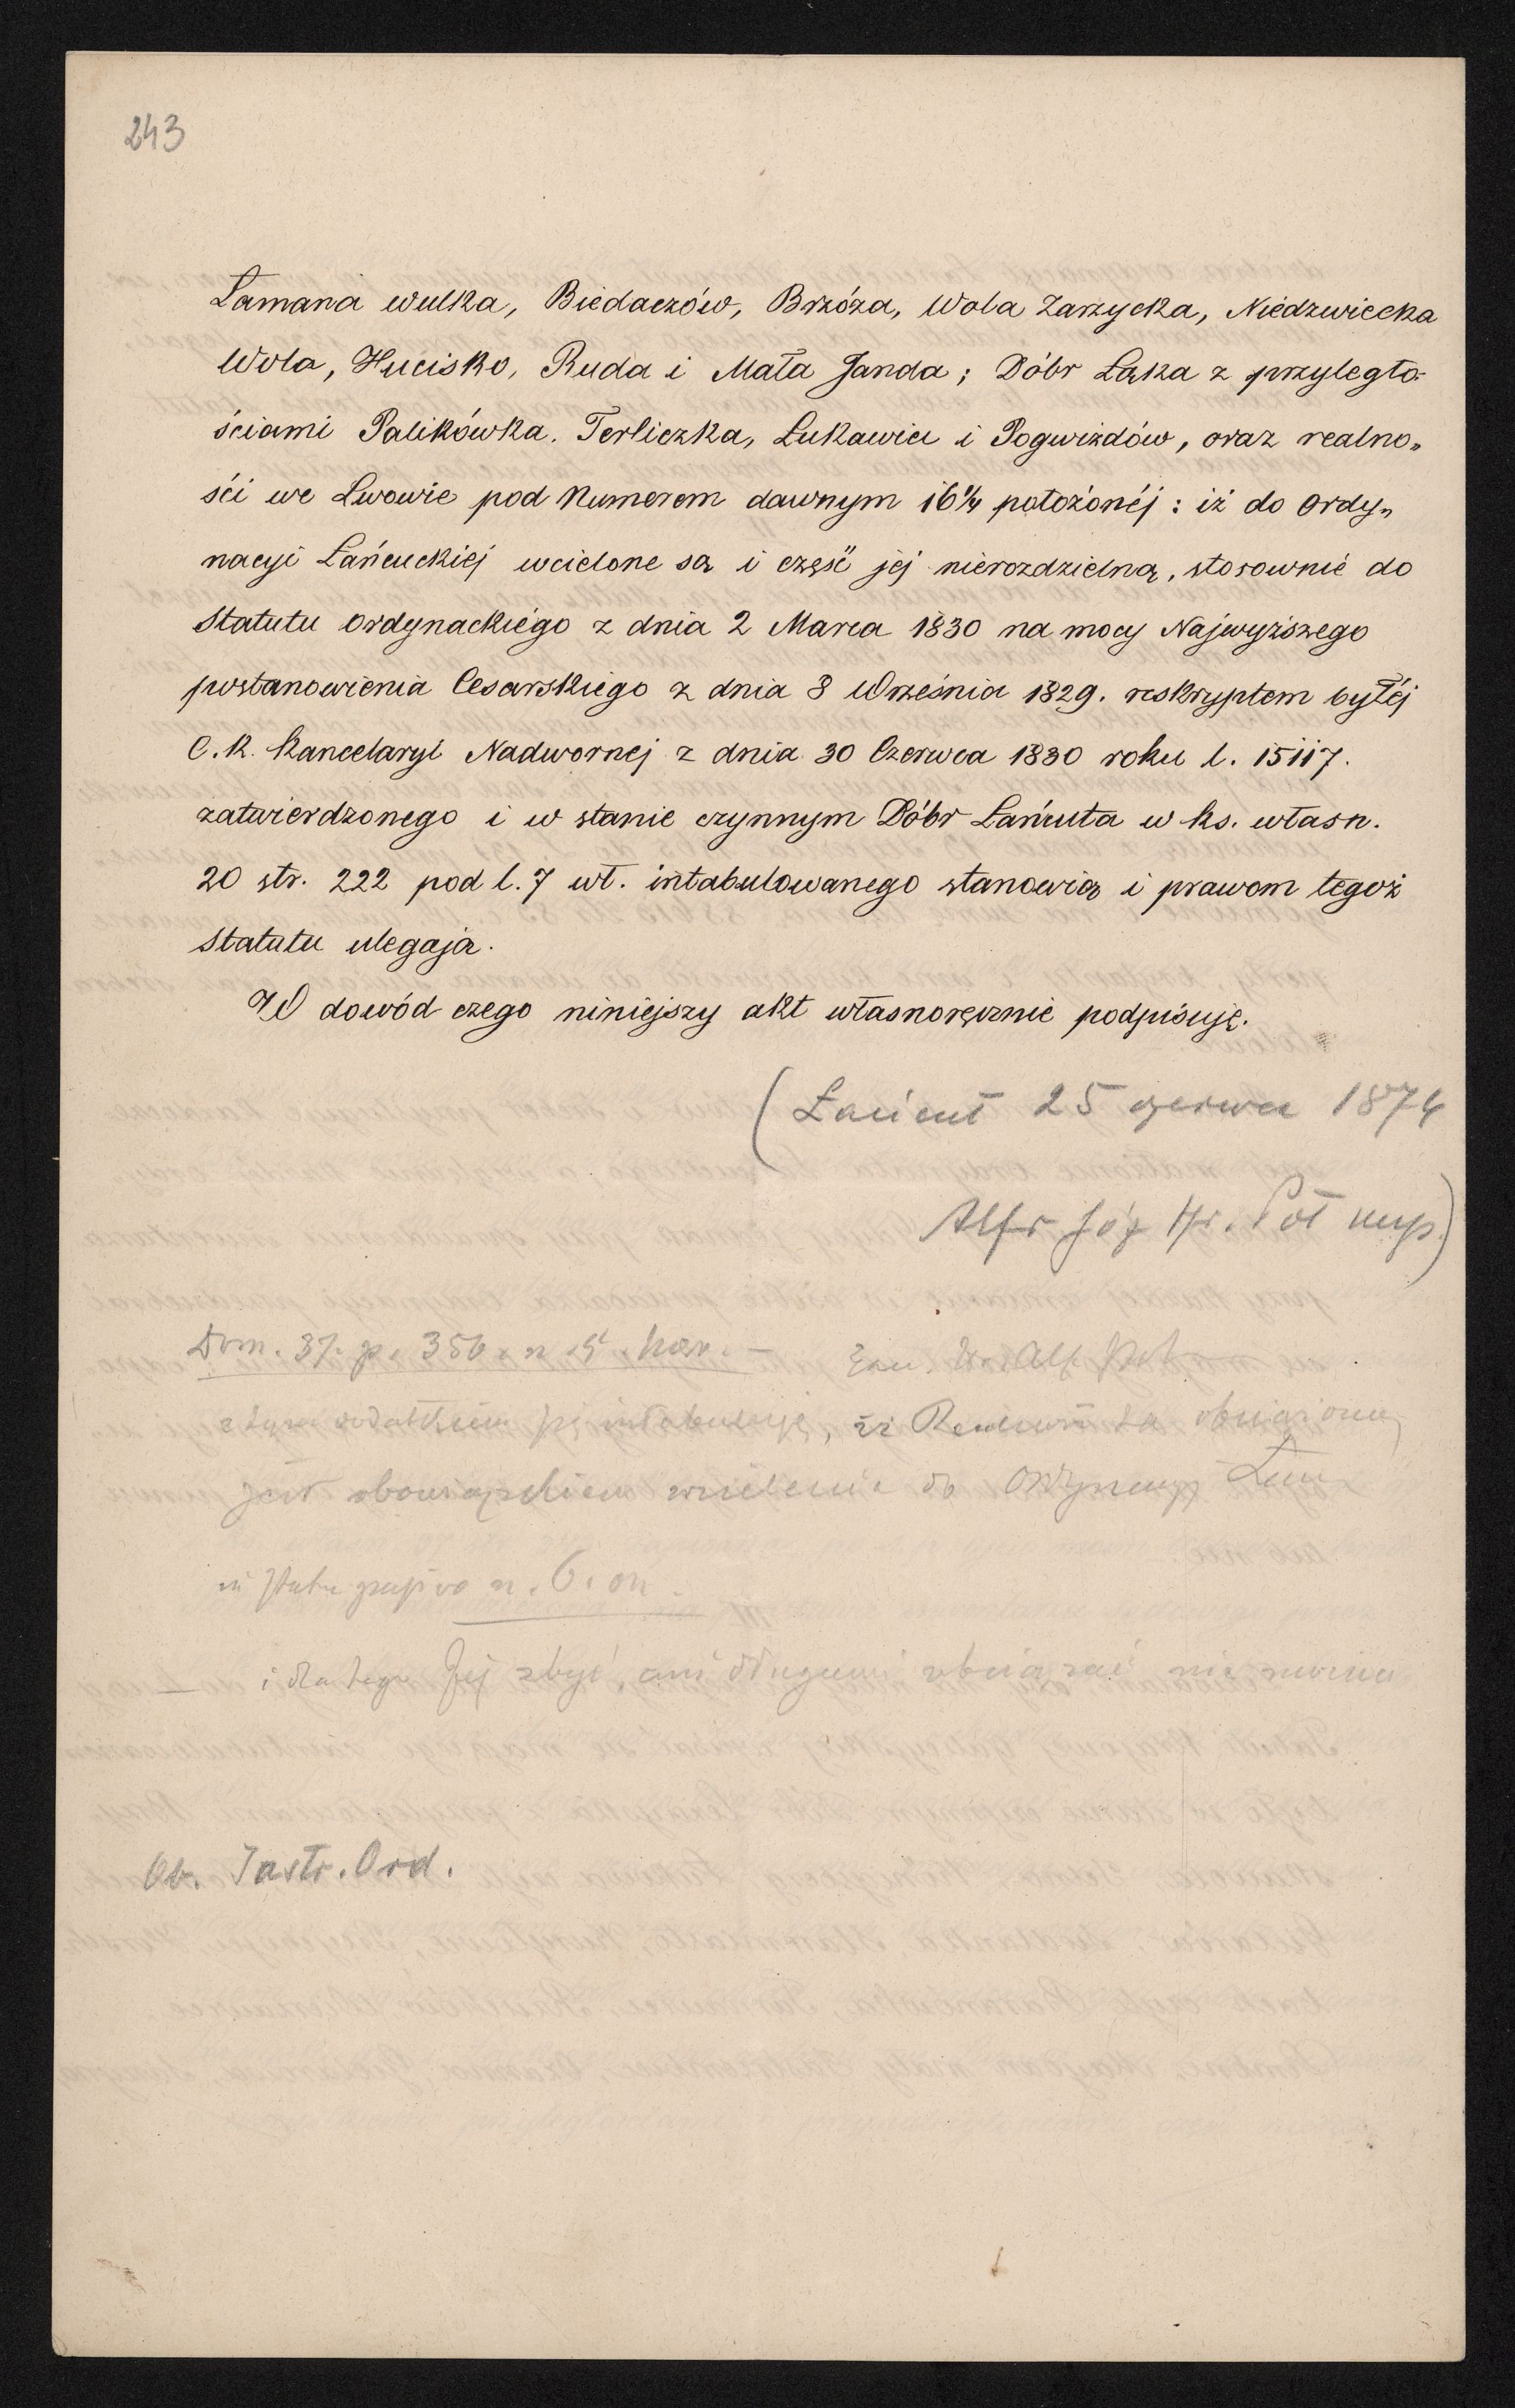 243
Łamana wulka, Biedaczów, Brzóza, Wola Zarzycka, Niedzwiecka
Wola, Hucisko, Ruda i Mała Janda; Dóbr Łąka z przyległo-
ściami Palikówka. Terliczka, Łukawice i Pogwizdów, oraz realno„
ści we Lwowie pod Numerem dawnym 16¼ położonéj: iż do Ordy„
nacyi Łańcuckiej wcielone są i część jej nierozdzielną, stosownie do
Statutu Ordynackiego z dnia 2 Marca 1830 na mocy Najwyższego
postanowienia Cesarskiego z dnia 8 Września 1829. reskryptem byłéj
C. K. Kancelaryi Nadwornej z dnia 30 Czerwca 1830 roku l. 15117.
zatwierdzonego i w stanie czynnym Dóbr Łańcuta w ks. własn.
20 str. 222 pod l. 7 wł. intabulowanego stanowią i prawom tegoż
Statutu ulegają.
W dowód czego niniejszy akt własnoręcznie podpisuję.
(Łańcut 25 czerwca 1874
Alfr Józ Hr. Pot mp)
Dom. 37. p. 356. n 5. haer. — Alf. Pot
z tym dodatkiem intabuluje, iż Realność ta obciążoną
jest obowiązkiem wcielenia do Ordynacyi Łańc
n. 6. on.
— i dla tego Jej zbyć, ani długami obciążać nie można
Ob. Instr. Ord.